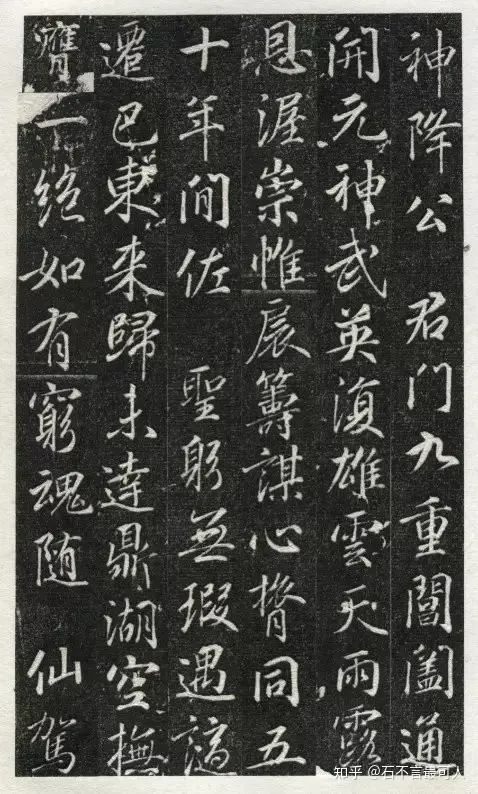 神降公 君门九重閶闔通
開元神武英復雄雲天雨露
恩渥崇帷扆籌謀心膂同五
十年間佐 聖躬無瑕遇謫
遷巴東來歸未達鼎湖空撫
膺一絕如有窮魂随 仙駕
知乎 @石不言最可人